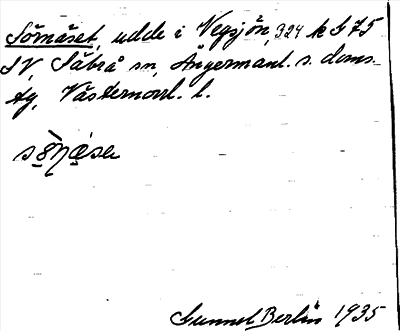 Sömåset, udde i Vegsjön, 324 k S 75
SV, Säbrå sn, Ångermanl. s. doms-
tg, Västernorrl. l.
Gunnel Berlin 1935